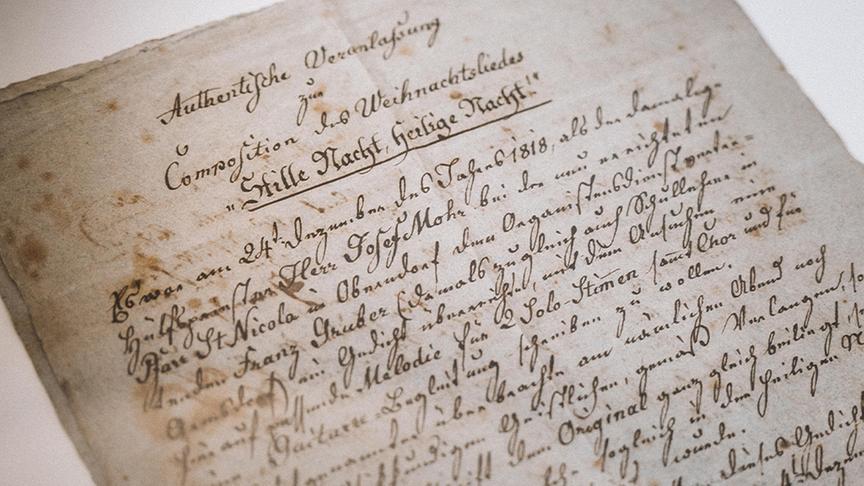 Authentische Veranlassung
zur
Composition des Weihnachtsliedes
„Stille Nacht, Heilige Nacht!“
Es war am 24t Dezember des Jahres 1818, als der damalige
Hülfspriester Herr Josef Mohr bei der neu errichteten
Pfarr St Nicola in Oberndorf dem Organistendienst vertre-
tenden Franz Gruber (damals zugleich auch Schullehrer in
Arnsdorf) ein Gedicht überreichte, mit dem Ansuchen eine
hierauf passende Melodie für 2 Solo-Stimen sammt Chor und für
eine Guitarre-Begleitung schreiben zu wollen.
überbrachte am nämlichen Abend noch
Geistlichen, gemäß Verlangen, so
dem Original ganz gleich beiliegt
sogleich in der heiligen
wurde.
dieses Gedicht